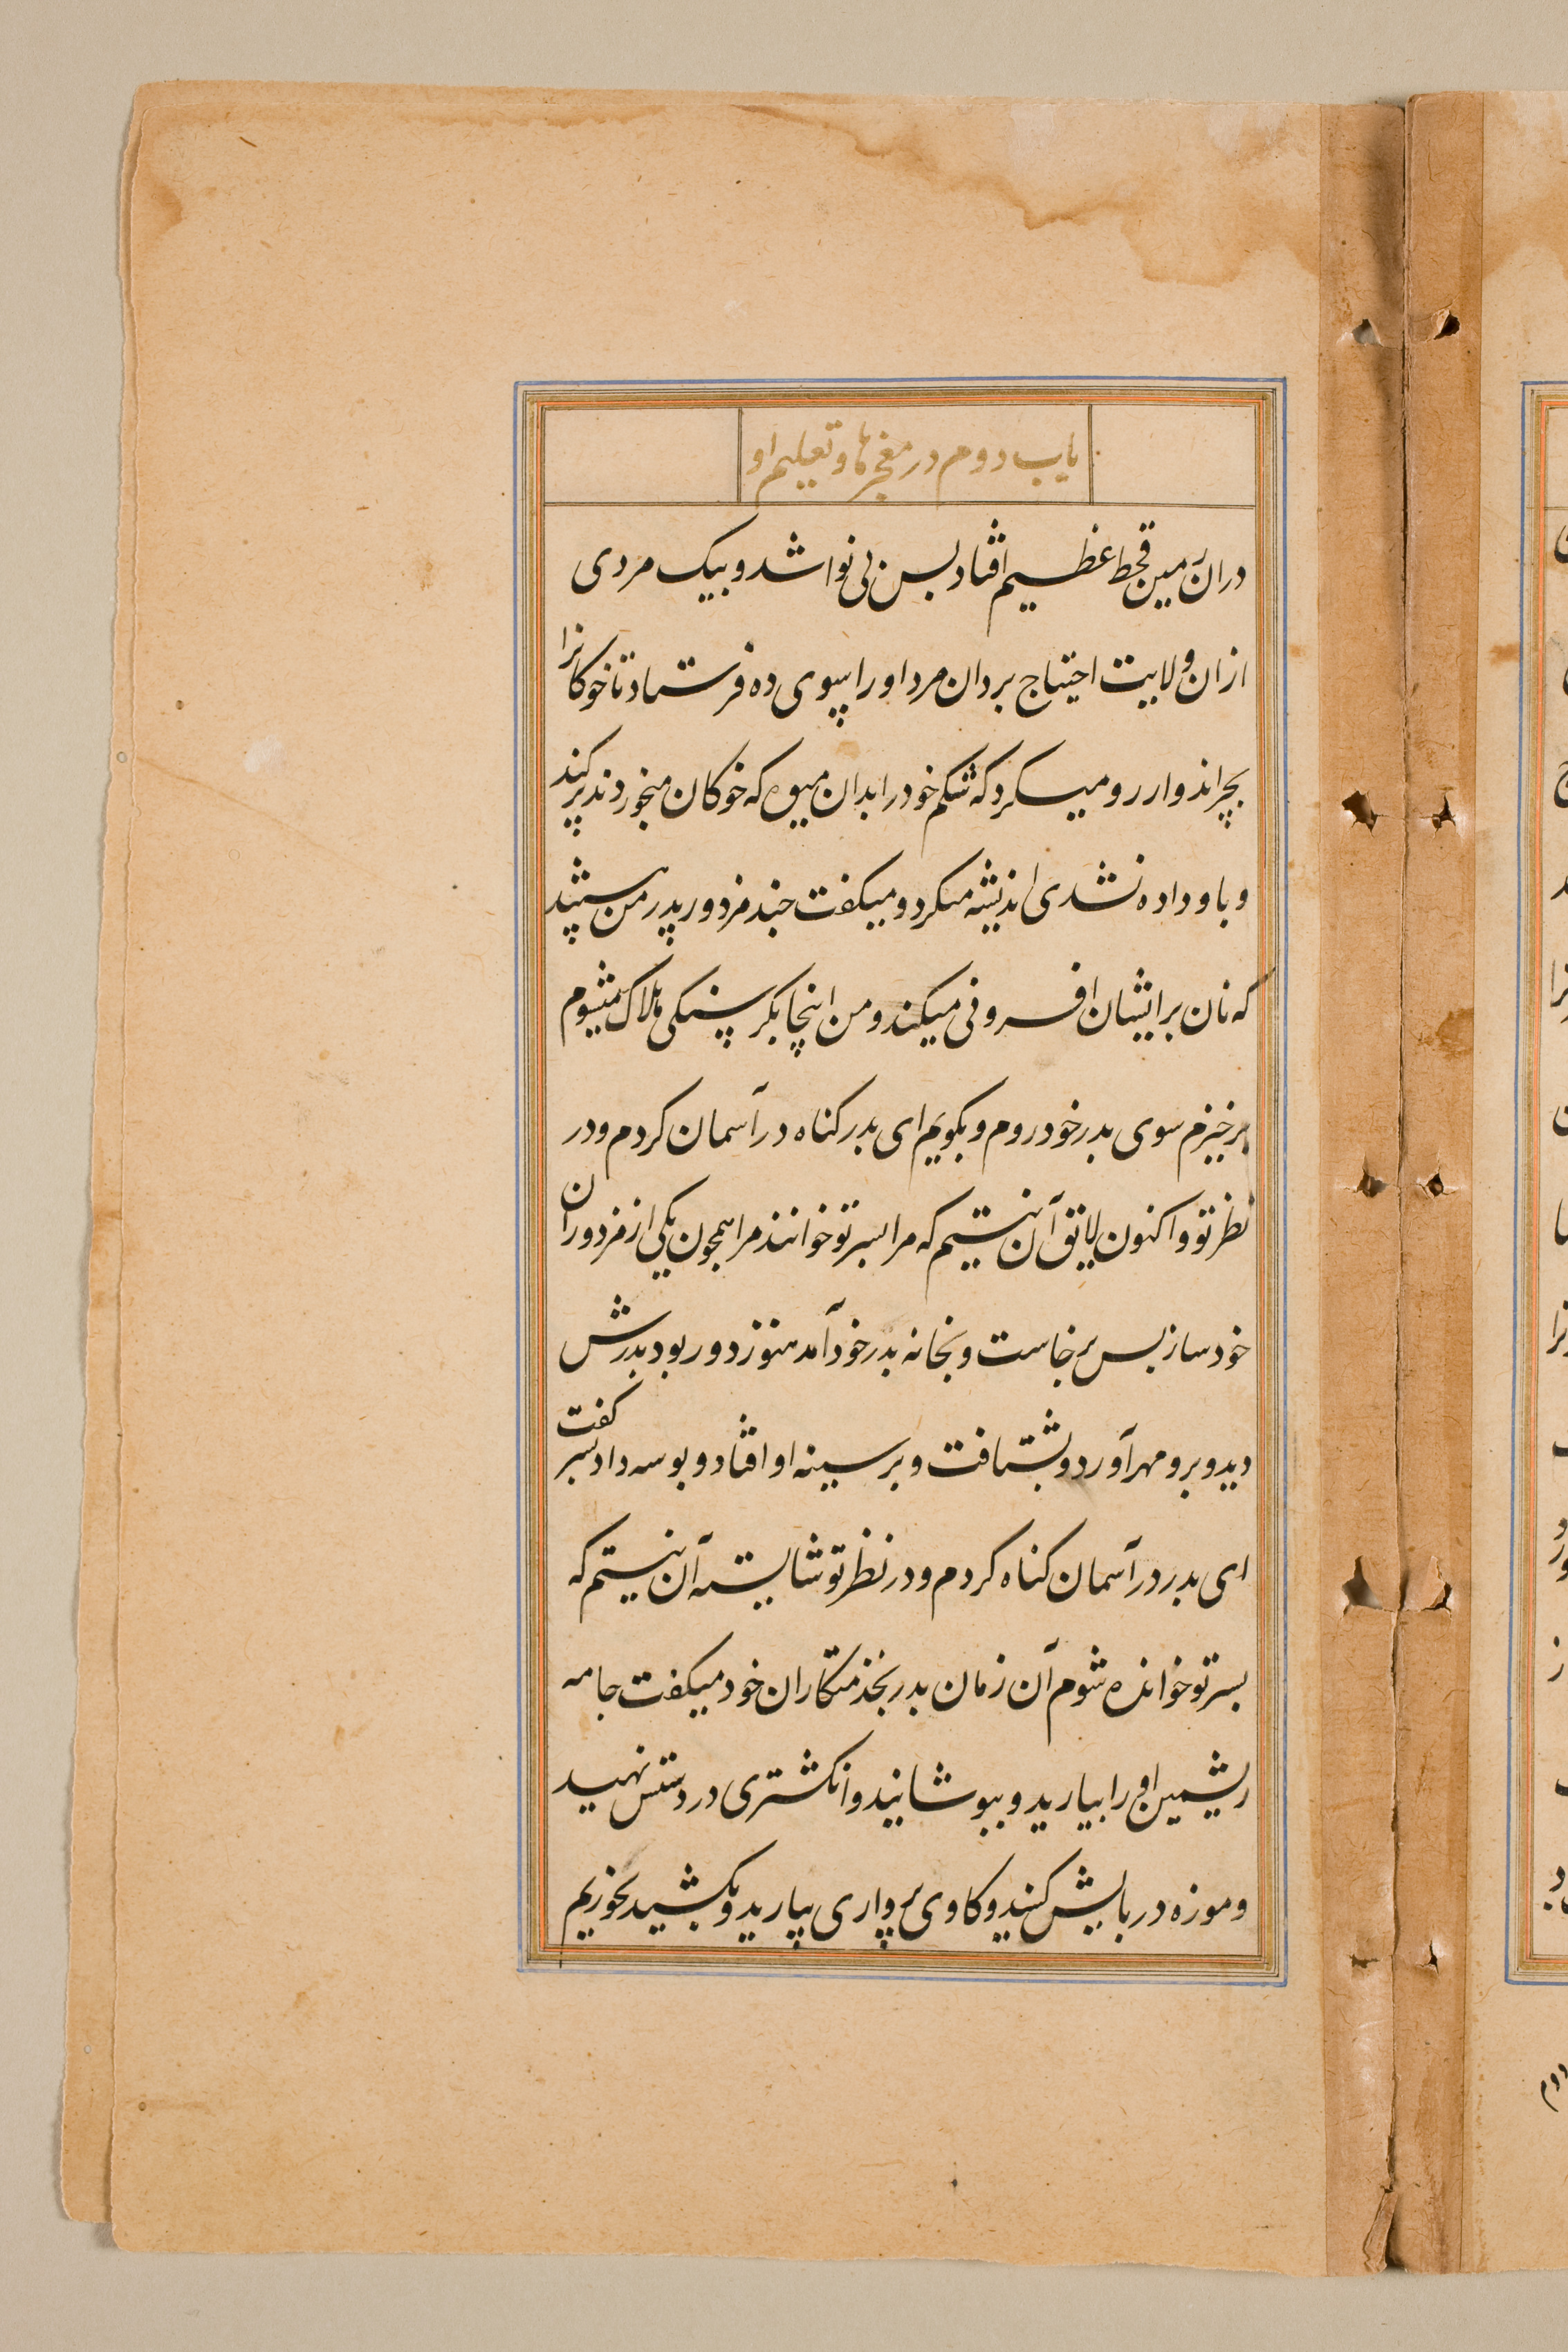 باب دوم در معجزها و تعلیم او
دران زمین قحط عظیم افتاد بس بی نوا شد و بیک مردی
ازان ولایت احتیاج برد ان مرد او را بسوی ده فرستاد تا خوکانرا
بچراند و ارزو میکرد که شکم خود را بدان میوه که خوکان میخوردند پر کند
و باو داده نشدی اندیشه میکرد و میکفت چند مزدور پدر من هستند
که نان بر ایشان افزونی میکند و من اینجا بکرسنکی هلاک میشوم
برخیزم سوی بدر خود روم و بکویم ای بدر کناه در آسمان کردم و در
نظر تو و اکنون لایق آن نیستم که مرا بسر تو خوانند مرا همچون یکی از مزدوران
خود ساز بس برخاست و بخانه بدر خود آمد هنوز دور بود بدرش
دید و برو مهر آورد و بشتافت و بر سینه او افتاد و بوسه داد بسر کفت
ای بدر در آسمان کناه کردم و در نظر تو شایسته آن نیستم که
بسر تو خوانده شوم آن زمان بدر بخدمتکاران خود میکفت جامه
ریشمین او را بیارید و ببوشانید و انکشتری در دستش نهید
و موزه در پایش کنید و کاوی پرواری بیارید و بکشید بخوریم